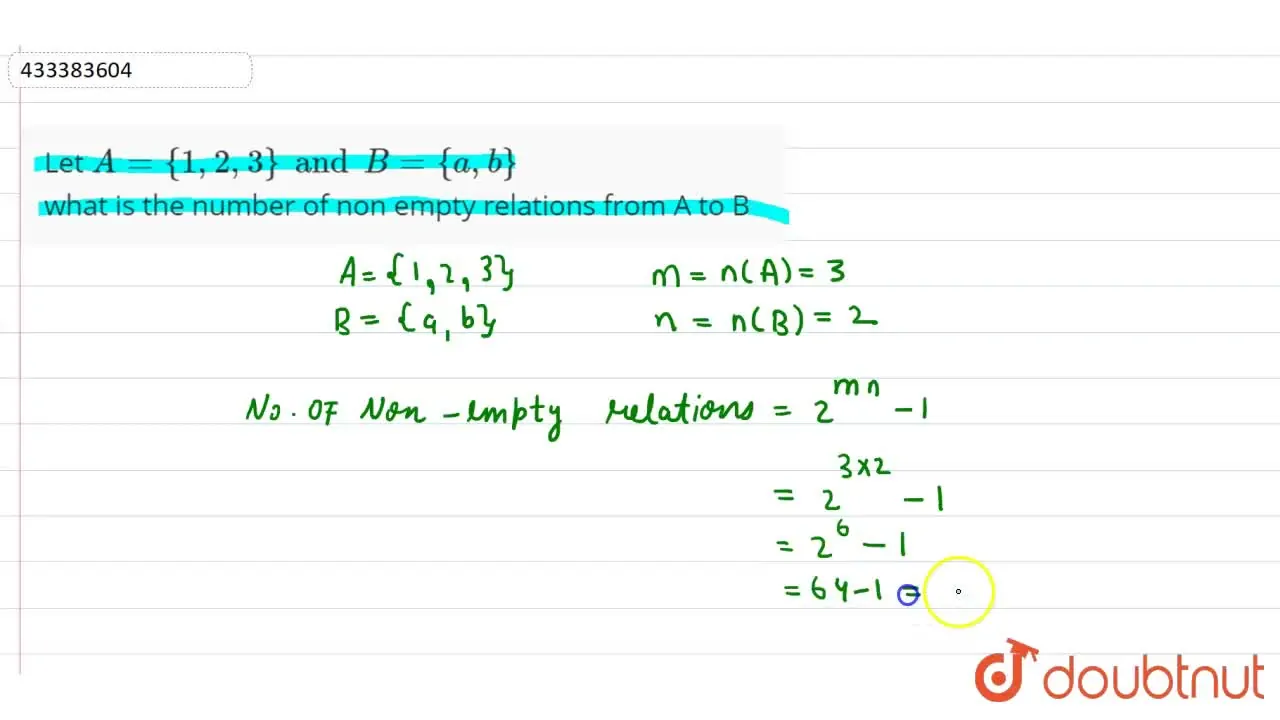 433383604
Let A = {1, 2, 3} and B = {a, b}
what is the number of non empty relations from A to B
A = {1, 2, 3} m = n(A) = 3
B = {a, b} n = n(B) = 2
No. OF Non-empty relations = 2^{mn} - 1
= 2^{3×2} - 1
= 2^6 - 1
= 64 - 1 =
doubtnut